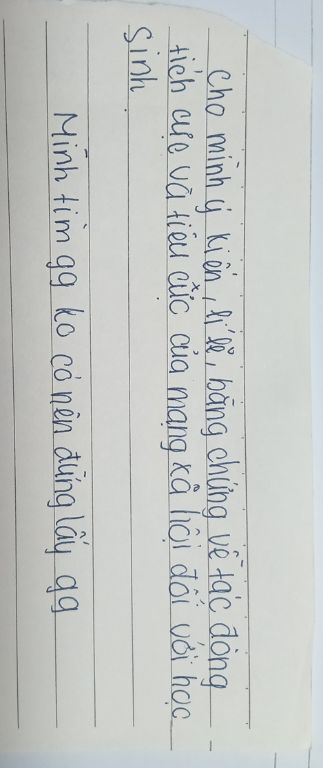 cho mình ý kiến, lí lẽ, bằng chứng về tác động
tích cực và tiêu cực của mạng xã hội đối với học
sinh.
Mình tìm gg ko có nên đừng lấy gg